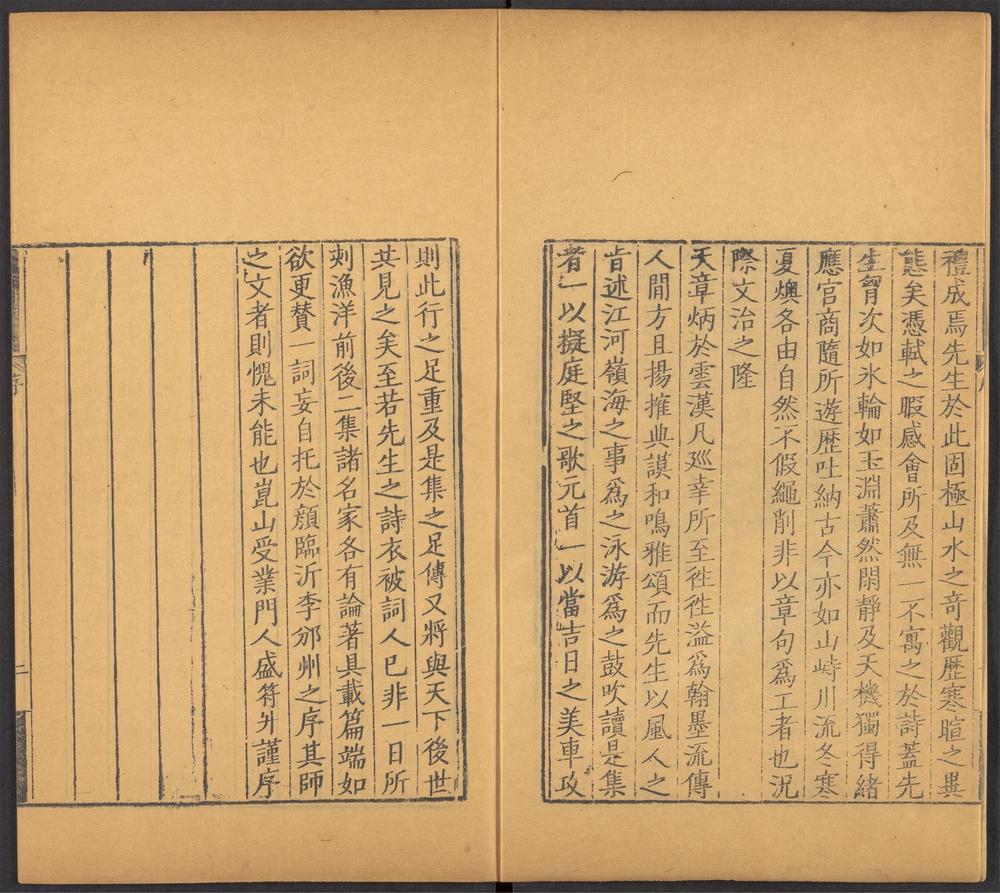 禮成焉先生於此固極山水之奇觀歷寒暄之異
態矣憑軾之暇感會所及無一不寓之於詩蓋先
生胷次如氷輪如玉淵蕭然閑靜及天機獨得緒
應宮商隨所遊歷吐納古今亦如山峙川流冬寒
夏燠各由自然不假繩削非以章句爲工者也況
際文治之隆
天章炳於雲漢凡廵幸所至徃徃溢爲翰墨流傳
人閒方且揚搉典謨和鳴雅頌而先生以風人之
㫖述江河嶺海之事爲之泳游爲之鼓吹讀是集
者一以擬庭堅之歌元首一以當吉日之美車攻
則此行之足重及是集之足傳又將與天下後世
共見之矣至若先生之詩衣被詞人已非一日所
刺漁洋前後二集諸名家各有論著具載篇端如
欲更賛一詞妄自托於顔臨沂李邠州之序其師
之文者則愧未能也崑山受業門人盛符升謹序
序
二